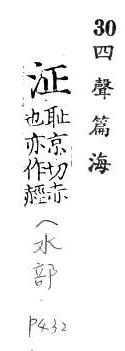 30 四聲篇海
泟
耻京切赤
也亦作䞓
(水部．P432